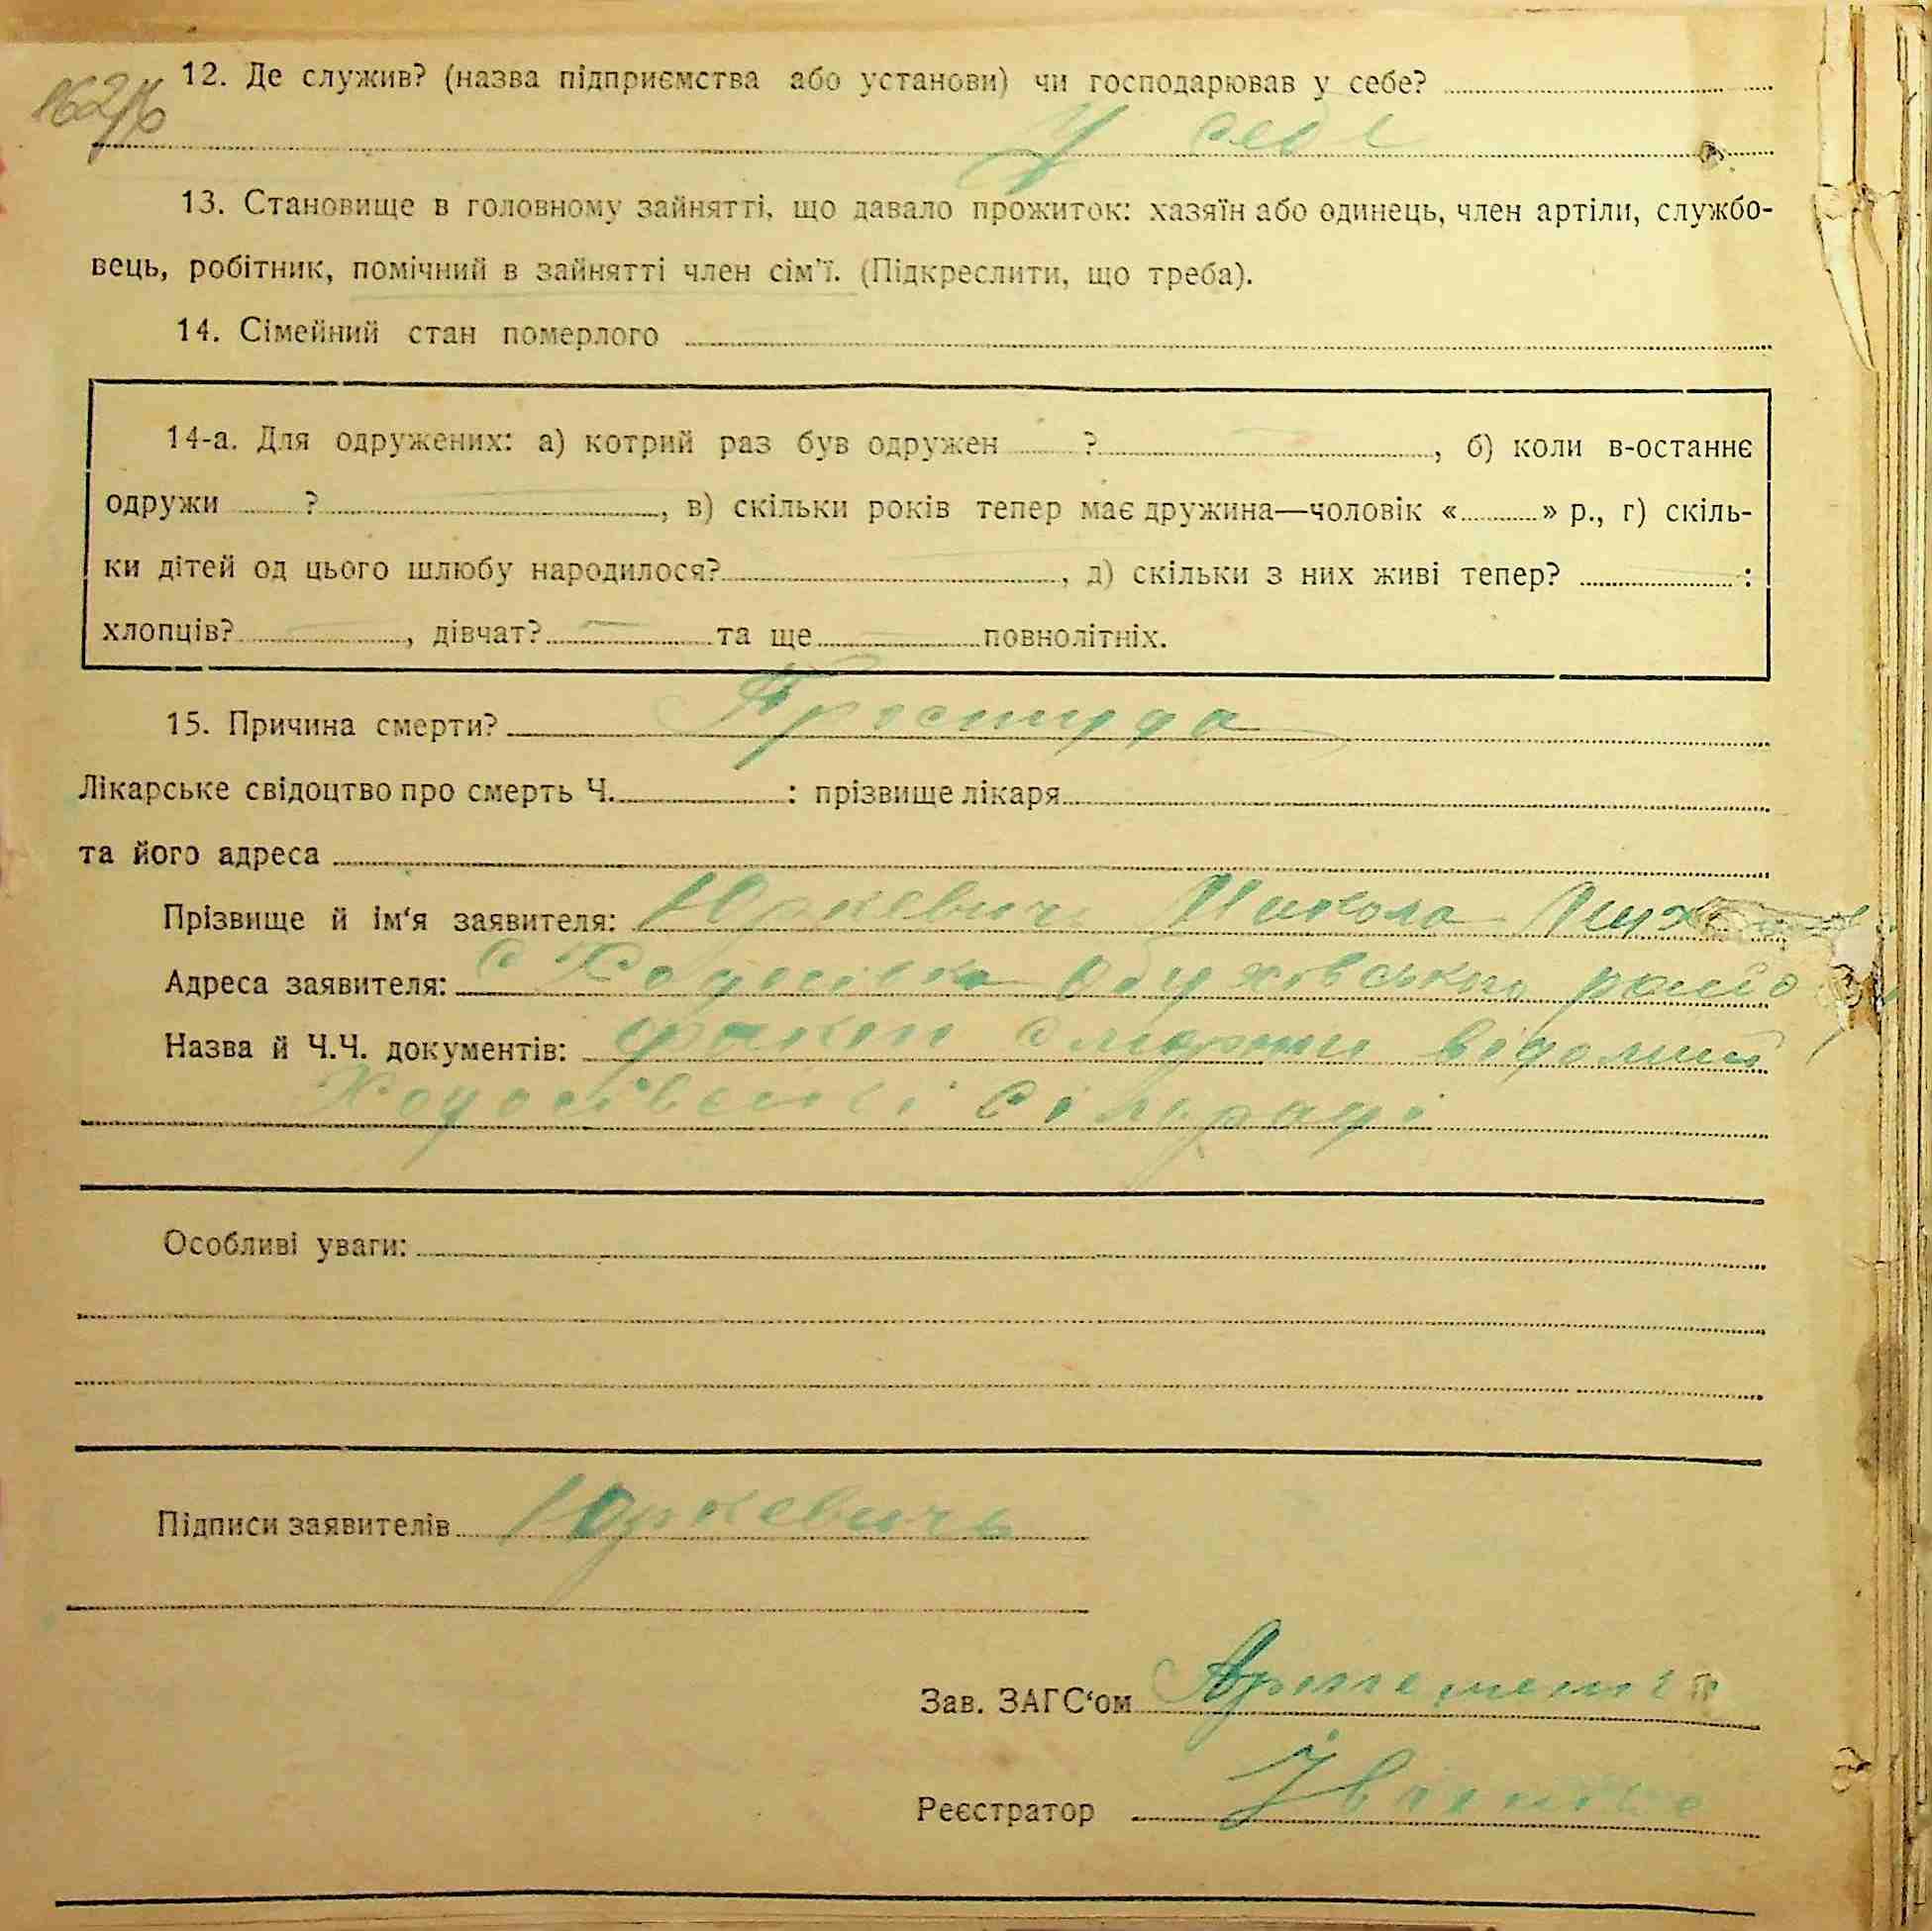 162/16
12. Де служив? (назва підприємства або установи) чи господарював у себе?
У себе
13. Становище в головному зайнятті, що давало прожиток: хазяїн або одинець, член артіли, службо-
вець, робітник, помічний в зайнятті член сім'ї. (Підкреслити, що треба).
14. Сімейний стан померлого
14-а. Для одружених: а) котрий раз був одружен ? , б) коли в-останнє
одружи ? , в) скільки років тепер має дружина—чоловік « » р., г) скіль-
ки дітей од цього шлюбу народилося? , д) скільки з них живі тепер? :
хлопців? , дівчат? та ще повнолітніх.
15. Причина смерти? Простуда
Лікарське свідоцтво про смерть Ч. : прізвище лікаря
та його адреса
Прізвище й ім'я заявителя: Юркевич Микола
Адреса заявителя: с Ходосівка Обуховського райо
Назва й Ч.Ч. документів: факт смерти відомий
Ходосівській Сільраді
Особливі уваги:
Підписи заявителів Юркевичь
Зав. ЗАГС'ом
Реєстратор